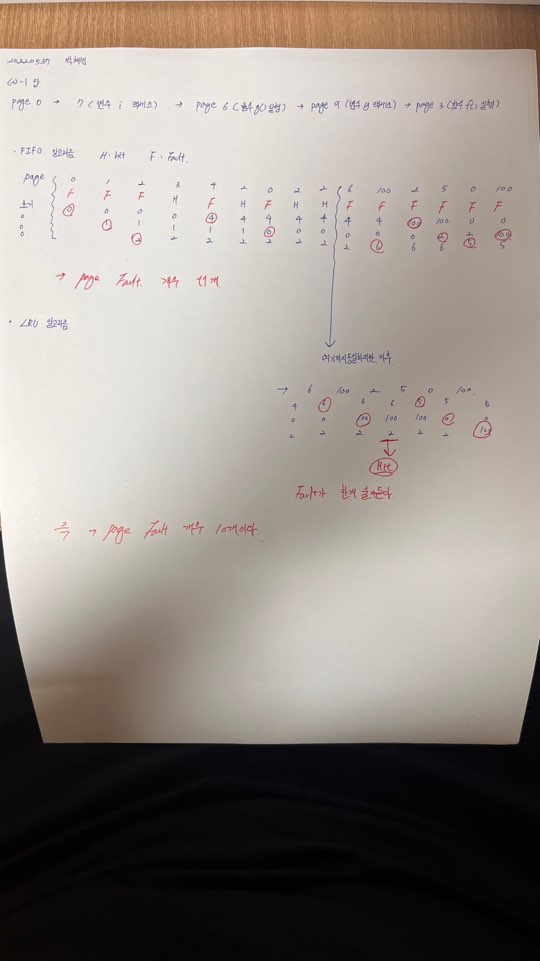 20220537
(2)-1 답
page 0 → 7 (변수 i 액세스) → page 6 (함수 g() 실행) → page 9 (변수 y 액세스) → page 3 (함수 f() 실행)
· FIFO 알고리즘 H : hit F : Fault.
page 0 1 2 3 4 2 0 2 2 6 100 2 5 0 100
초기 F F F H F H F H H F F F F F F
0 0 0 0 0 4 4 4 4 4 4 4 100 100 0 0
0 1 1 1 1 1 0 0 0 0 0 0 2 2 100
0 2 2 2 2 2 2 2 2 6 6 6 5 5
→ page Fault 개수 11개
· LRU 알고리즘
여기까지 동일하지만 이후
→ 6 100 2 5 0 100.
4 6 6 6 5 5 5
0 0 100 100 100 0 0
2 2 2 2 2 2 100
Hit
Fault가 한개 줄어든다.
즉 → page Fault 개수 10개이다.